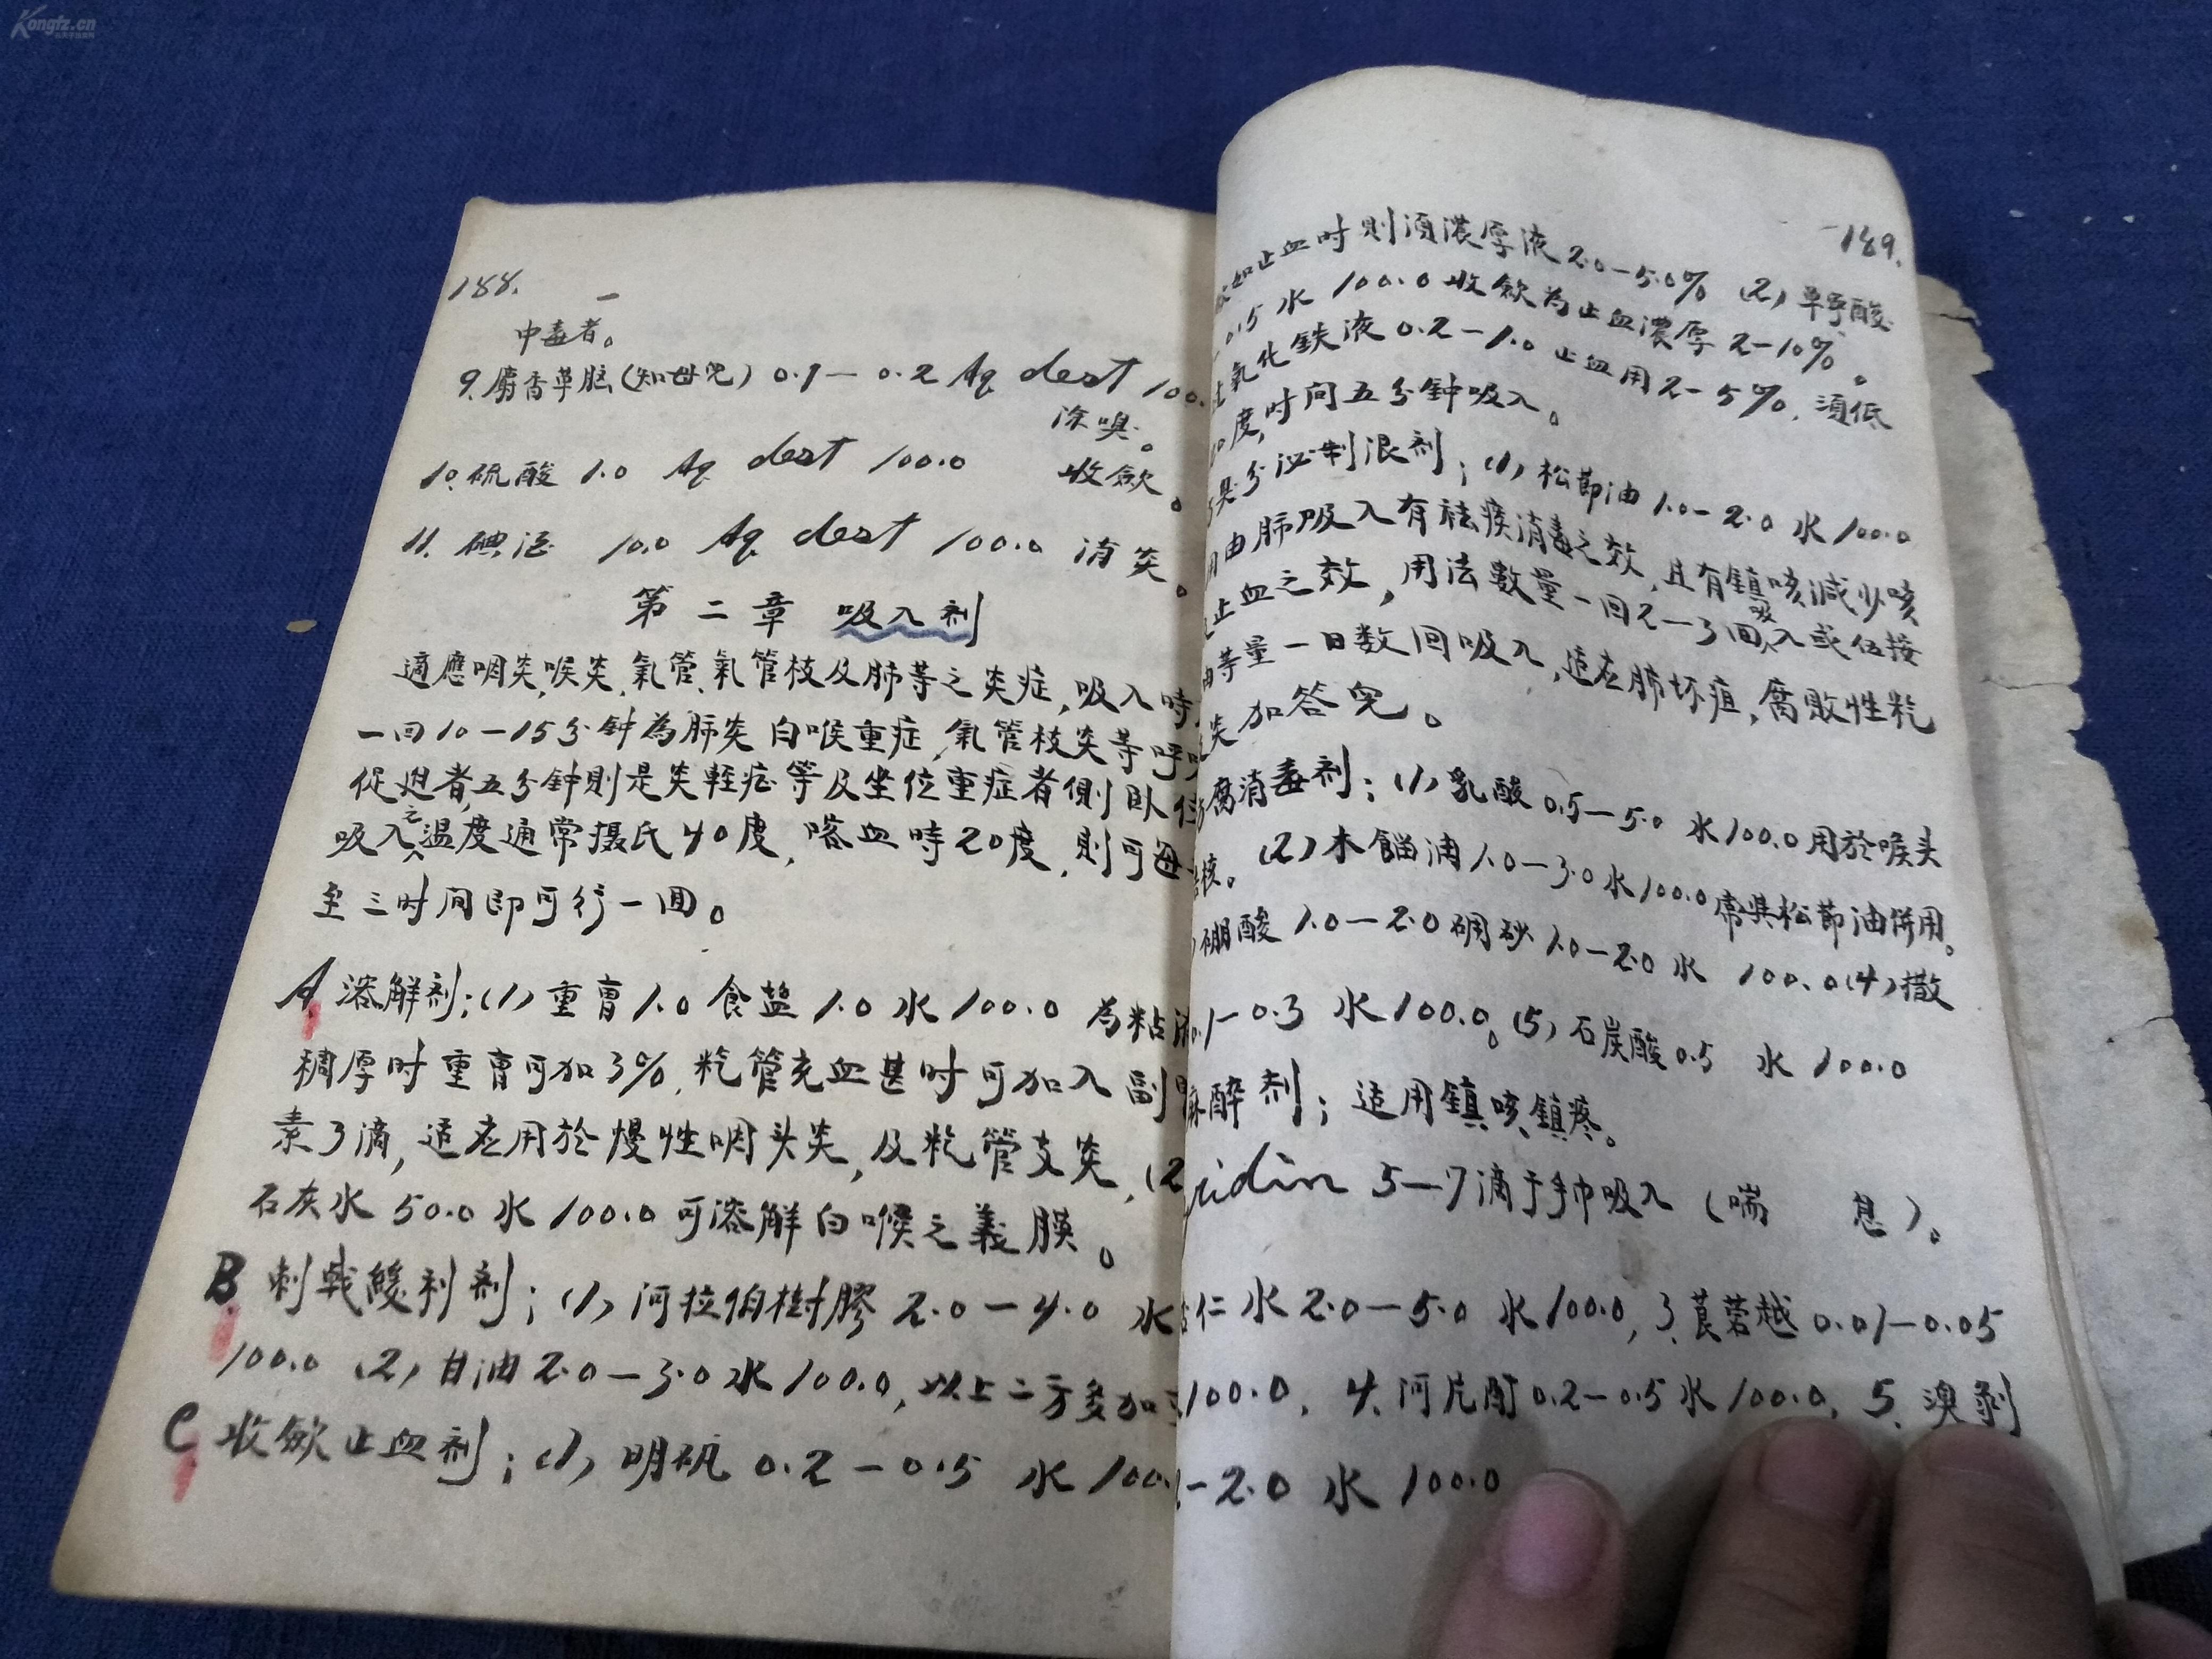 Kongfz.cn
188.
中毒者。
9.麝香草脑(知母児) 0.1-0.2 Aq dest 100.
除嗅。
10.硫酸 1.0 Aq dest 100.0 收歛。
11.碘 10.0 Aq dest 100.0 消炎。
第二章 吸入剤
適應咽炎,喉炎,氣管、氣管枝及肺等之炎症,吸入時
一回10-15分钟為肺炎白喉重症,氣管枝炎等呼
促廹者,五分钟則是炎軽症等及坐位重症者側卧
吸入之温度通常摄氏40度,喀血時20度,則可每
至三时间即可行一回。
A 溶解剤;(1)重曹1.0食盐1.0水100.0 為粘
稠厚时重曹可加3%,籺管充血甚时可加入副
素3滴,适应用於慢性咽头炎,及籺管支炎,(2
石灰水50.0水100.0可溶解白喉之義膜。
B 刺戟緩利剤;(1)阿拉伯樹膠2.0-4.0水
100.0 (2)甘油2.0-3.0水100.0,以上二方多加
C 收歛止血剤;(1)明矾0.2-0.5 水100.
189.
如止血时則須濃厚液2.0-5.0% (2)単寧酸
0.5水100.0收歛為止血濃厚2-10%。
氧化鉄液0.2-1.0止血用2-5%,須低
度,时间五分钟吸入。
分泌制限剤;(1)松節油1.0-2.0水100.0
由肺吸入有祛痰消毒之效,且有鎮咳減少咳
止血之效,用法数量一回2-3回吸入或伍接
等量一日数回吸入,适应肺坏疽,腐敗性籺
炎加答児。
腐消毒剤;(1)乳酸0.5-5.0 水100.0用於喉头
核。(2)木餾油1.0-3.0水100.0常與松節油併用。
硼酸1.0-2.0硼砂1.0-2.0水 100.0(4)撒
0.1-0.3 水100.0。(5)石炭酸0.5 水100.0
麻醉剤;适用鎮咳鎮疼。
ridin 5-7滴于手巾吸入(喘 息)。
仁水2.0-5.0 水100.0,3.莨菪越0.01-0.05
100.0, 4.阿片酊0.2-0.5水100.0, 5.溴剝
-2.0 水100.0